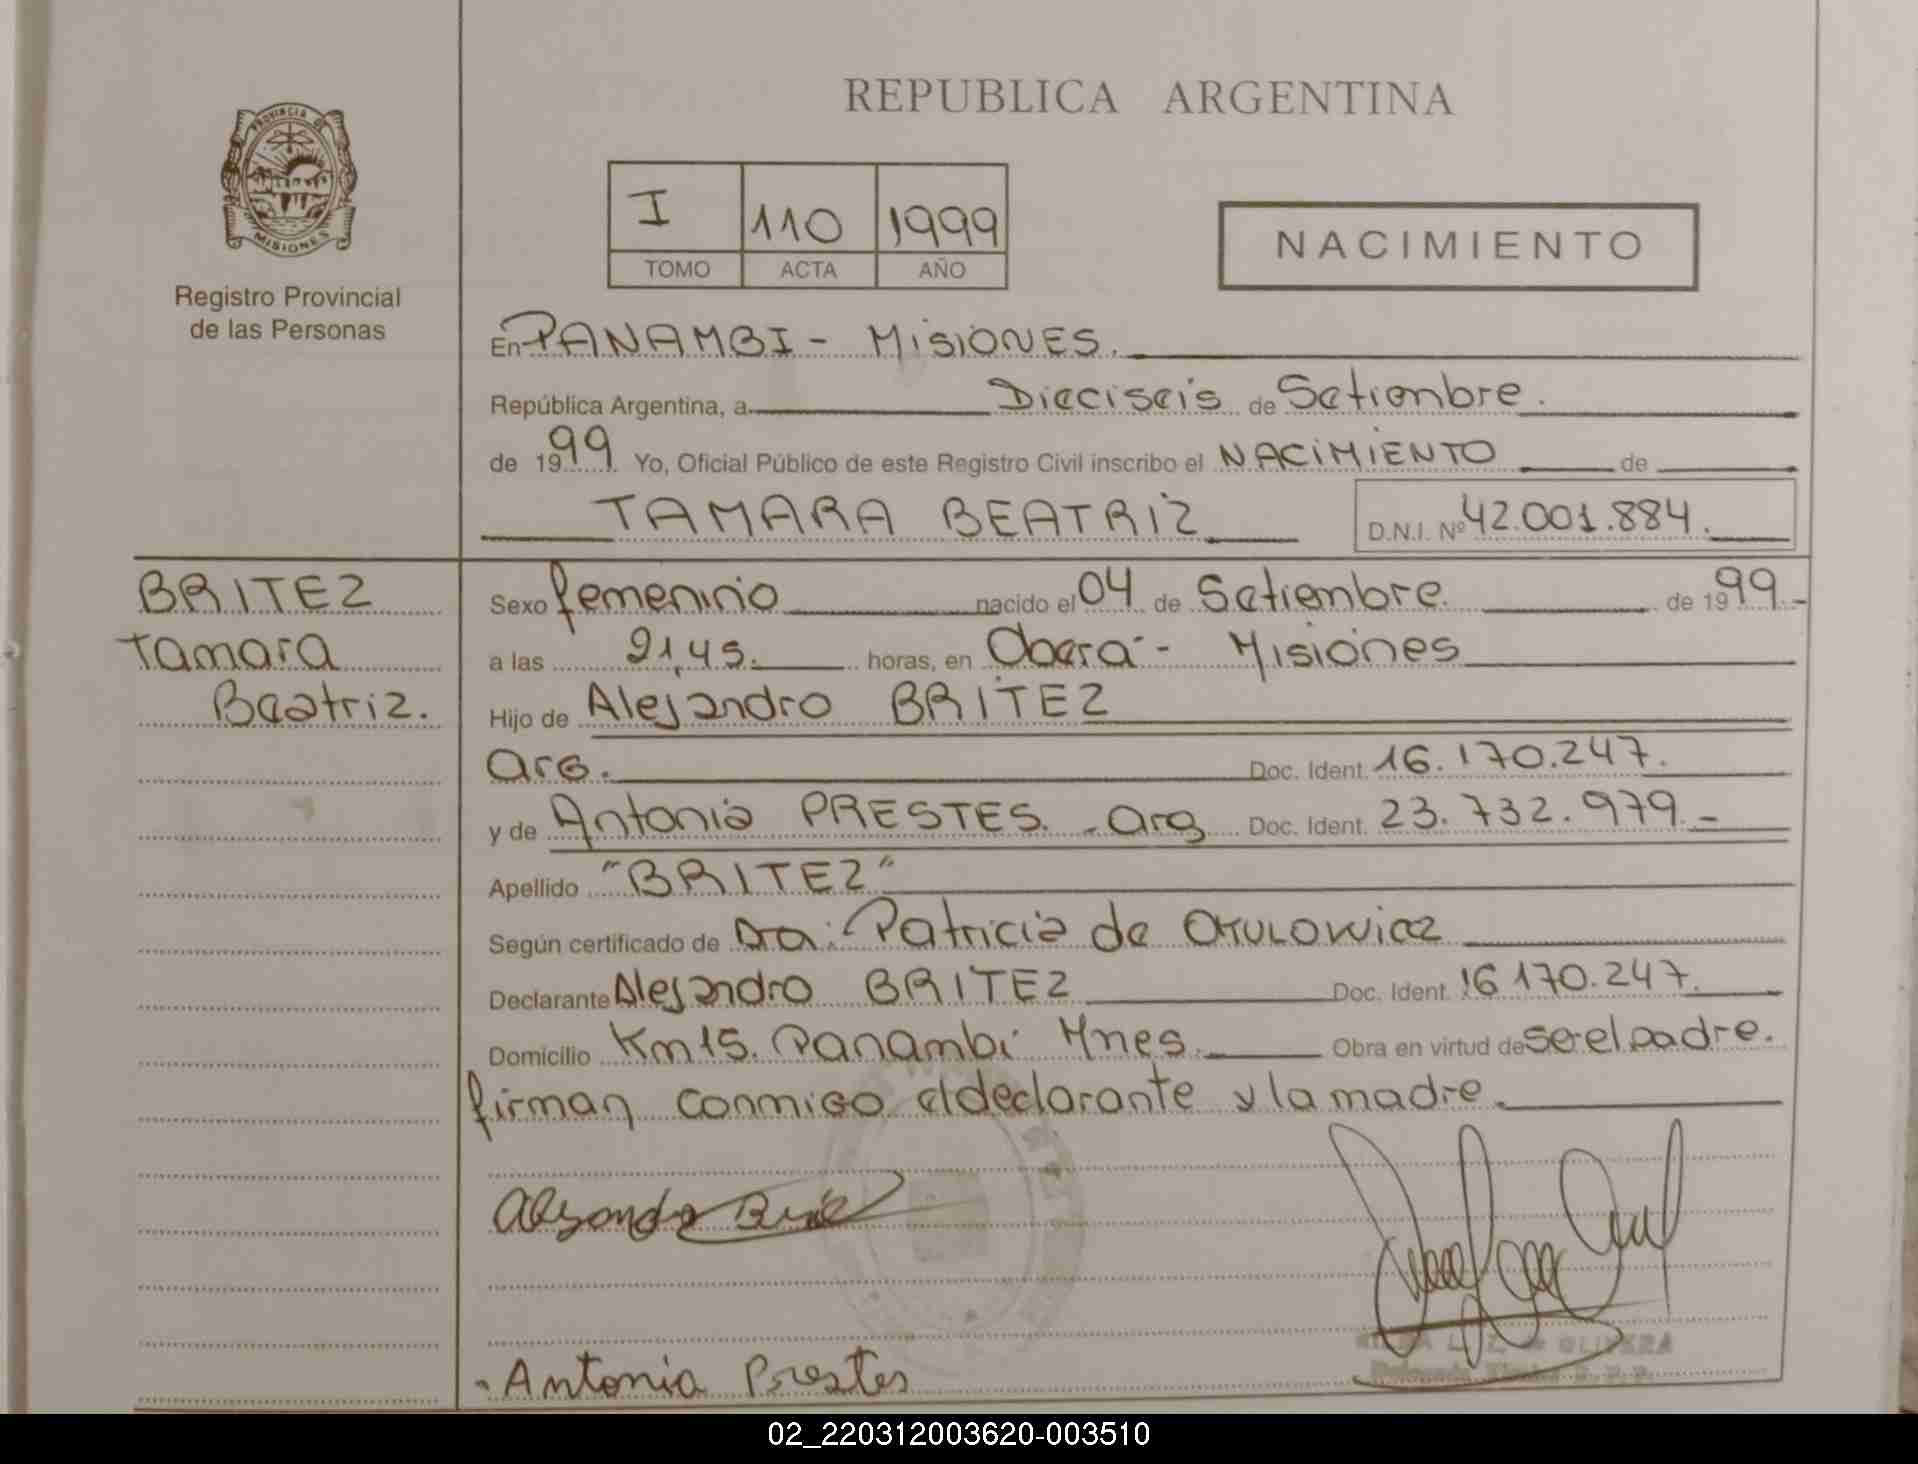 REPUBLICA ARGENTINA
PROVINCIA DE
MISIONES
Registro Provincial
de las Personas
I 110 1999
TOMO ACTA AÑO
NACIMIENTO
En PANAMBI - MiSiONES.
República Argentina, a Dieciseis de Setiembre.
de 1999 Yo, Oficial Público de este Registro Civil inscribo el NACiMiENTO de
TAMARA BEATRiZ
D.N.I. Nº 42.001.884.
BRITEZ
Tamara
Beatriz.
Sexo femenino nacido el 04 de Setiembre de 1999-
a las 21,45. horas, en Oberá - Misiones
Hijo de Alejandro BRITEZ
Arg. Doc. Ident. 16.170.247.
y de Antonia PRESTES. - Arg Doc. Ident. 23.732.979.-
Apellido "BRITEZ"
Según certificado de Dra: Patricia de
Declarante Alejandro BRITEZ Doc. Ident. 16 170.247.
Domicilio Km15. Panambi Mnes. Obra en virtud de ser el padre.
firman conmigo el declarante y la madre.
Antonia Prestes
OLIVERA
02_220312003620-003510